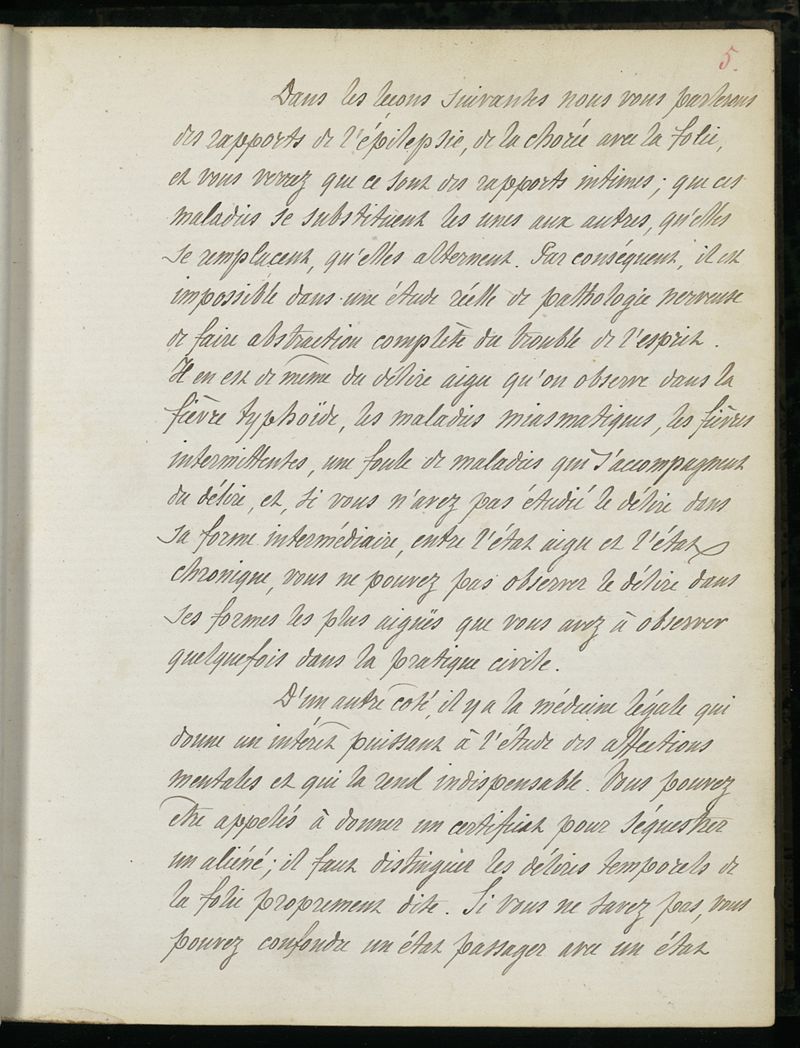 5.
Dans les leçons suivantes nous vous parlerons
des rapports de l'épilepsie, de la chorée avec la folie,
et vous verrez que ce sont des rapports intimes ; que ces
maladies se substituent les unes aux autres, qu'elles
se remplacent, qu'elles alternent. Par conséquent, il est
impossible dans une étude réelle de pathologie nerveuse
de faire abstraction complète du trouble de l'esprit.
Il en est de même du délire aigu qu'on observe dans la
fièvre typhoïde, les maladies miasmatiques, les fièvres
intermittentes, une foule de maladies qui s'accompagnent
du délire, et, si vous n'avez pas étudié le délire dans
sa forme intermédiaire, entre l'état aigu et l'état
chronique, vous ne pouvez pas observer le délire dans
ses formes les plus aiguës que vous avez à observer
quelquefois dans la pratique civile.
D'un autre coté, il y a la médecine légale qui
donne un intérêt puissant à l'étude des affections
mentales et qui la rend indispensable. Vous pouvez
être appelés à donner un certificat pour séquestrer
un aliéné ; il faut distinguer les délires temporels de
la folie proprement dite. Si vous ne savez pas, vous
pouvez confondre un état passager avec un état